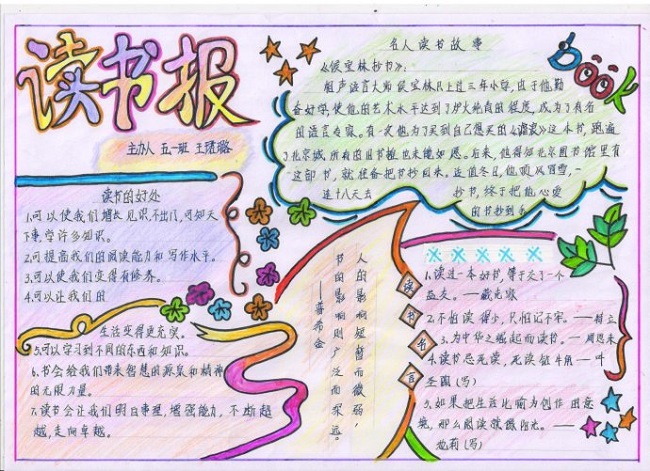 读书报
主办人 五一班 王
读书的好处
1.可以使我们增长见识,不出门,可知天
下事,学许多知识。
2.可提高我们的阅读能力和写作水平。
3.可以使我们变得有修养。
4.可以让我们的
生活变得更充实。
5.可以学习到不同的东西和知识。
6.书会给我们带来智慧的源泉和精神
的无限力量。
7.读书会让我们明白事理,增强能力,不断超
越,走向卓越。
名人读书故事
《侯宝林抄书》:
相声语言大师侯宝林只上过三年小学,由于他勤
奋好学,使他的艺术水平达到了炉火纯青的程度,成为了有名
的语言专家。有一次他为了买到自己想买的《谑浪》这本书,跑遍
了北京城所有的旧书摊也未能如愿。后来,他得知北京图书馆里有
这部书,就准备把书抄回来。适值冬日,他顶风冒雪,一
连十八天去 抄书,终于把他心爱
的书抄到手
BOOK
人的影响短暂而微弱,
书的影响则广泛而深远。
——普希金
读书名言
1.读过一本好书,等于交了一个
益友。——臧克家
2.不怕读得少,只怕记不牢。——
3.为中华之崛起而读书。——周恩来
4.读书忌死读,死读 牛角——叶
圣陶(写)
5.如果把生活比喻为创作的意
境,那么阅读就像阳光。——
池莉(写)